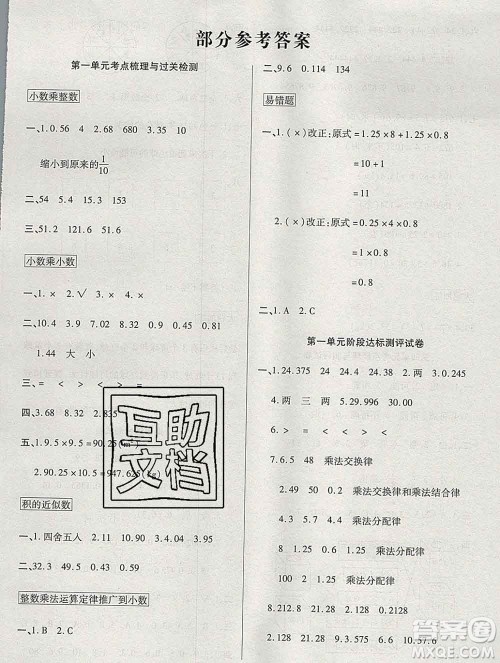 部分参考答案
第一单元考点梳理与过关检测
小数乘整数
一、1.0.56 4 2.680 3.35 4.0.027
缩小到原来的1/10
二、54 5.4 0.54
三、51.2 121.6 51.6
小数乘小数
一、1.× 2.√ 3.× 4.×
二、10.9 2.32 3.40 0.45 0.81
1.44 大 小
三、= < > < >
四、3.68 8.32 2.835
五、1.9.5×9.5=90.25(m²)
2.90.25×10.5=947.625(kg)
积的近似数
一、1.四舍五入 2.11 10.90 3.2 0.9 4.100
二、32.3 0.84 0.05
整数乘法运算定律推广到小数
一、1.B 2.C
二、9.6 0.114 134
易错题
一、1.(×)改正:原式=1.25×8+1.25×0.8
=10+1
=11
2.(×)改正:原式=0.25×4×0.8
=1×0.8
=0.8
二、1.A 2.C
第一单元阶段达标测评试卷
一、1.24.375 24 24.4 24.38 2.两 3.0.245
4.两 三 两 5.29.996 30.0
6.> = < > < <
7.6.5 48 乘法交换律
2.1 50 0.2 乘法交换律和乘法结合律
9.28 0.72 2.8 乘法分配律
100 1 2.5 乘法分配律
8.212.8 2128 0.056 3.8
2.128 0.056 38 9.36 10.57.6
互助
文档
答案圈
MXQE.COM